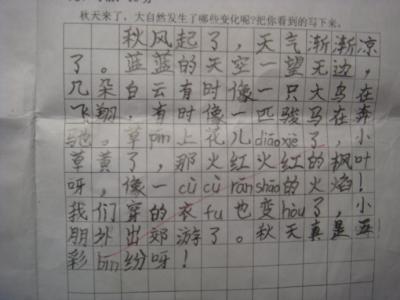 秋天来了,大自然发生了哪些变化呢?把你看到的写下来。
秋风起了,天气渐渐凉
了。蓝蓝的天空一望无边,
几朵白云有时像一只大鸟在
飞翔,有时像一匹骏马在奔
驰。草pín上花儿diāoxiè了,小
草黄了,那火红火红的枫叶
呀,像一cù cù ránshāo的火焰!
我们穿的衣fu也变hòu了,小
朋外出郊游了。秋天真是五
彩bīn纷呀!